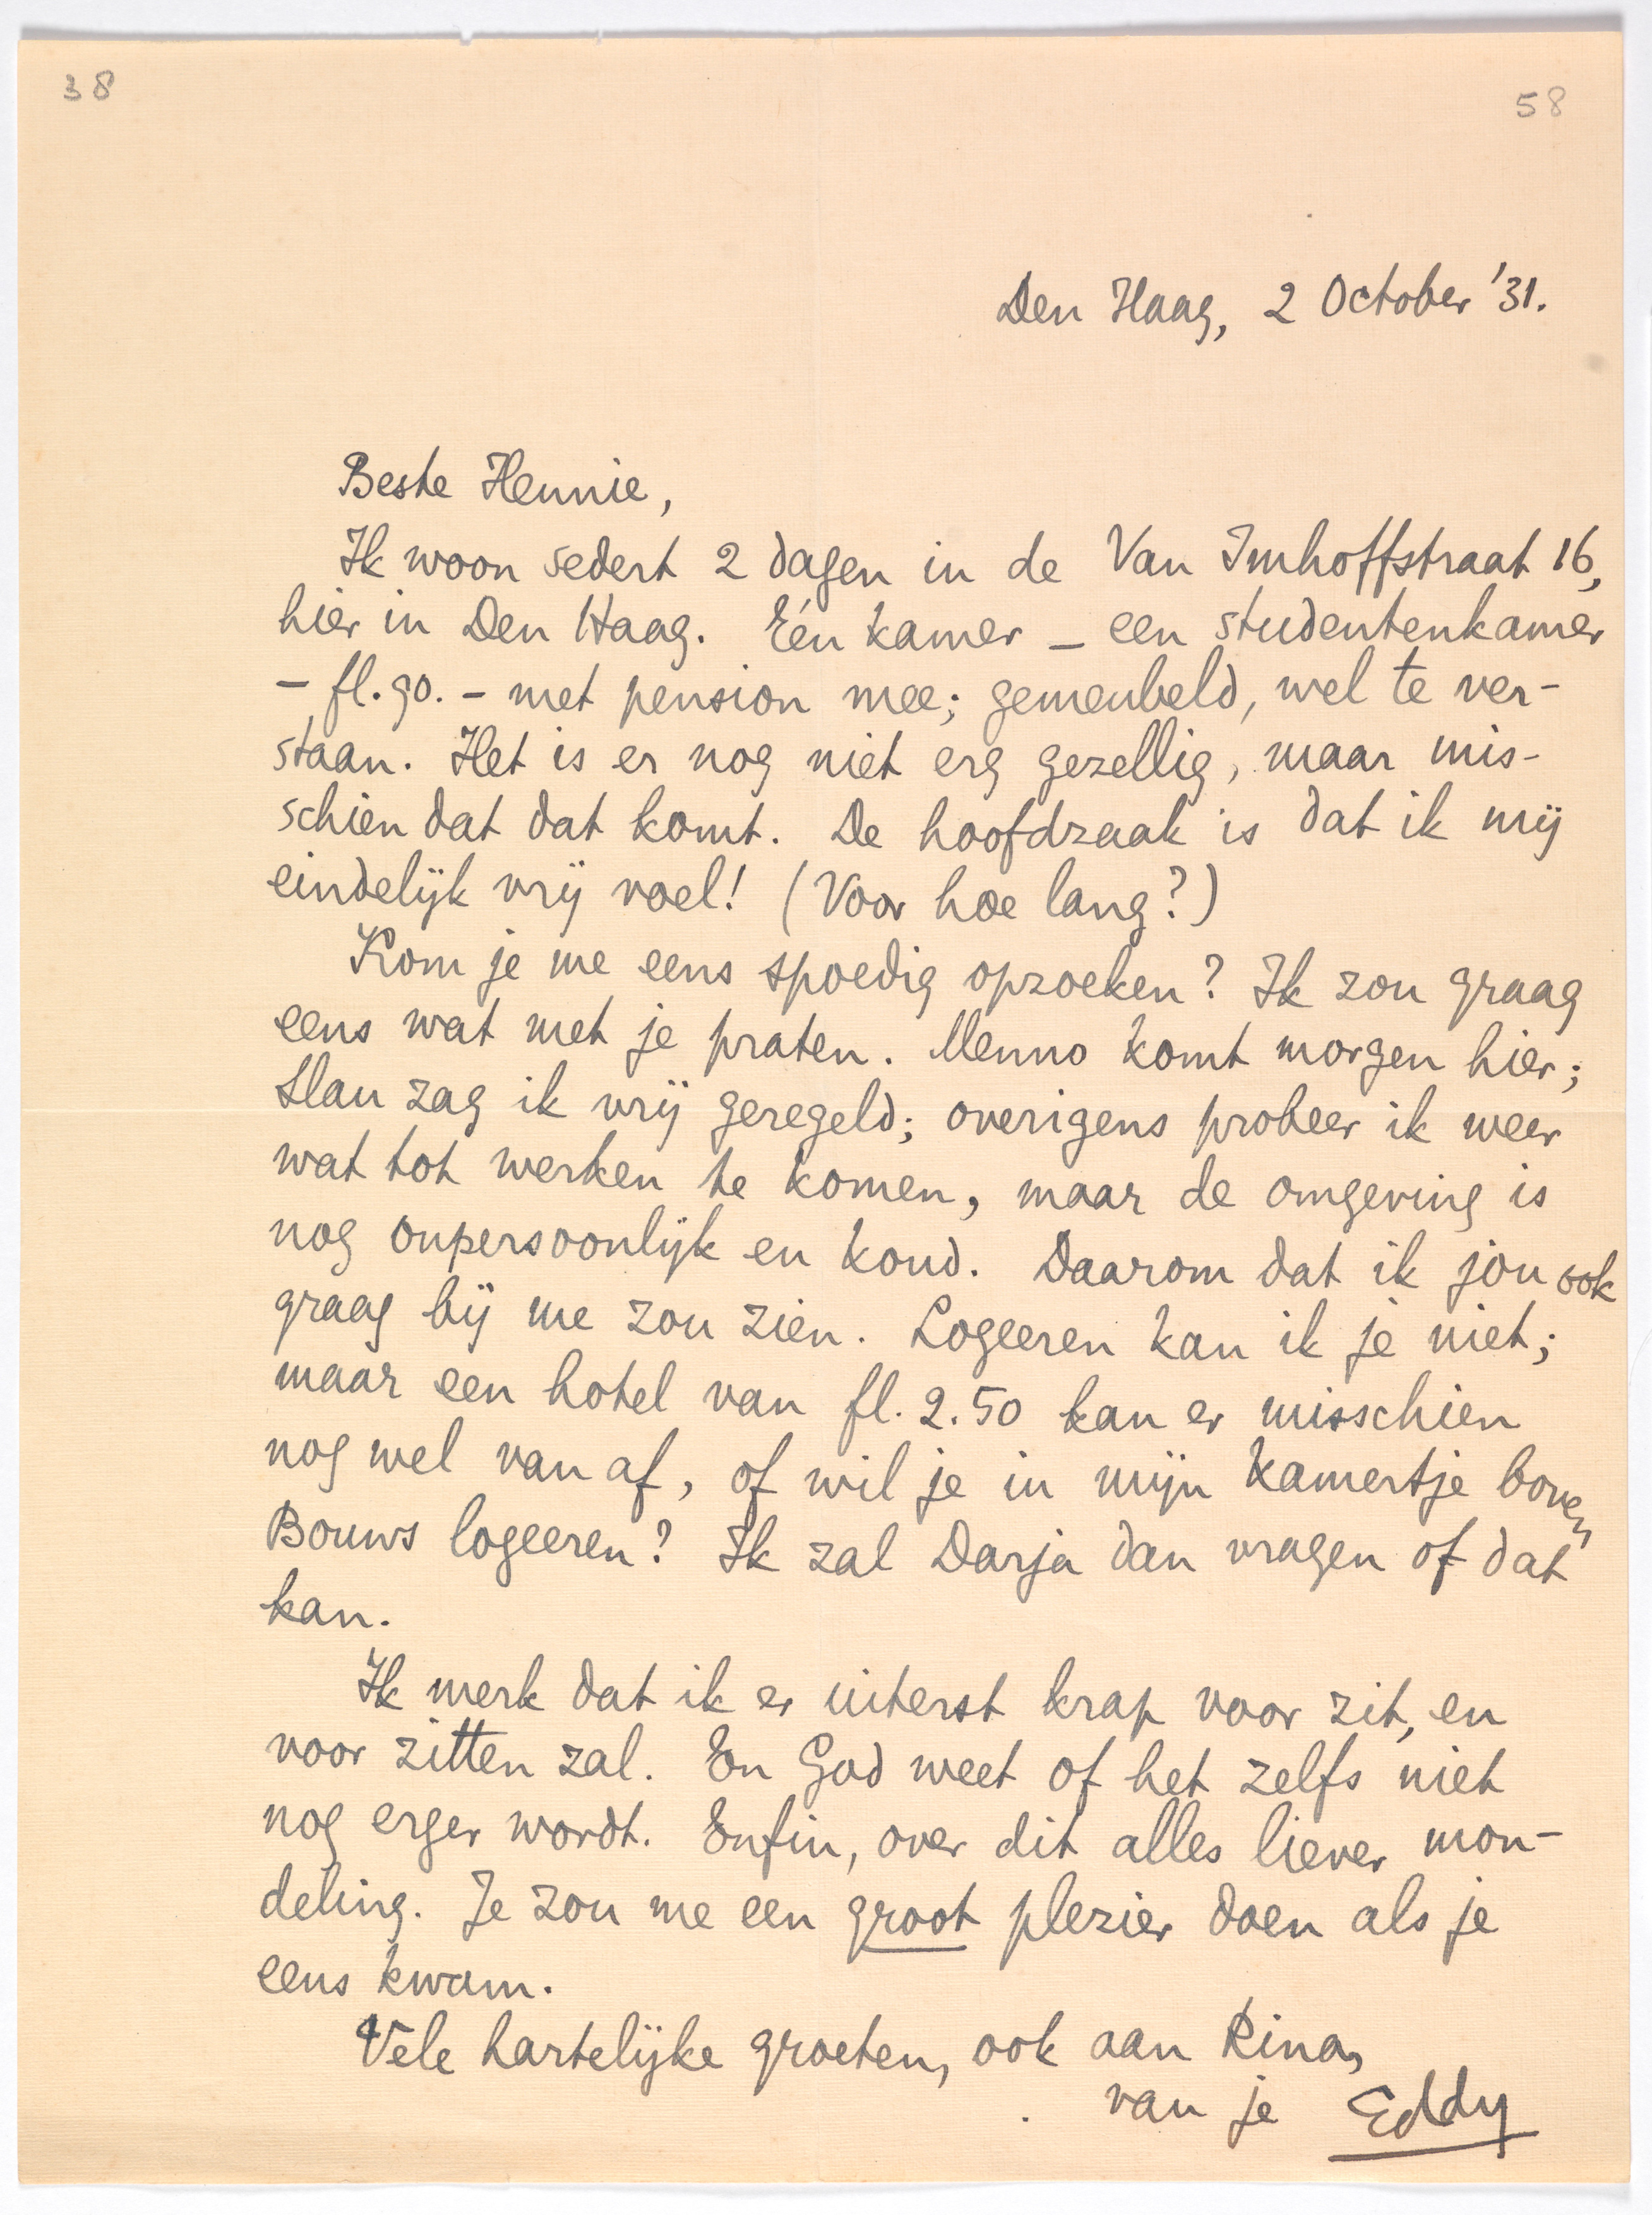 38
58
Den Haag, 2 October '31.
Beste Hennie,
Ik woon sedert 2 dagen in de Van Imhoffstraat 16,
hier in Den Haag. Eén kamer – een studentenkamer
– fl. 90. – met pension mee; gemeubeld, wel te ver-
staan. Het is er nog niet erg gezellig, maar mis-
schien dat dat komt. De hoofdzaak is dat ik mij
eindelijk vrij voel! (Voor hoe lang?)
Kom je me eens spoedig opzoeken? Ik zou graag
eens wat met je praten. Menno komt morgen hier;
Slau zag ik vrij geregeld; overigens probeer ik weer
wat tot werken te komen, maar de omgeving is
nog onpersoonlijk en koud. Daarom dat ik jou ook
graag bij me zou zien. Logeeren kan ik je niet;
maar een hotel van fl. 2.50 kan er misschien
nog wel van af, of wil je in mijn kamertje boven
Bouws logeeren? Ik zal Darja dan vragen of dat
kan.
Ik merk dat ik er uiterst krap voor zit, en
voor zitten zal. En God weet of het zelfs niet
nog erger wordt. Enfin, over dit alles liever mon-
deling. Je zou me een groot plezier doen als je
eens kwam.
Vele hartelijke groeten, ook aan Rina,
van je Eddy